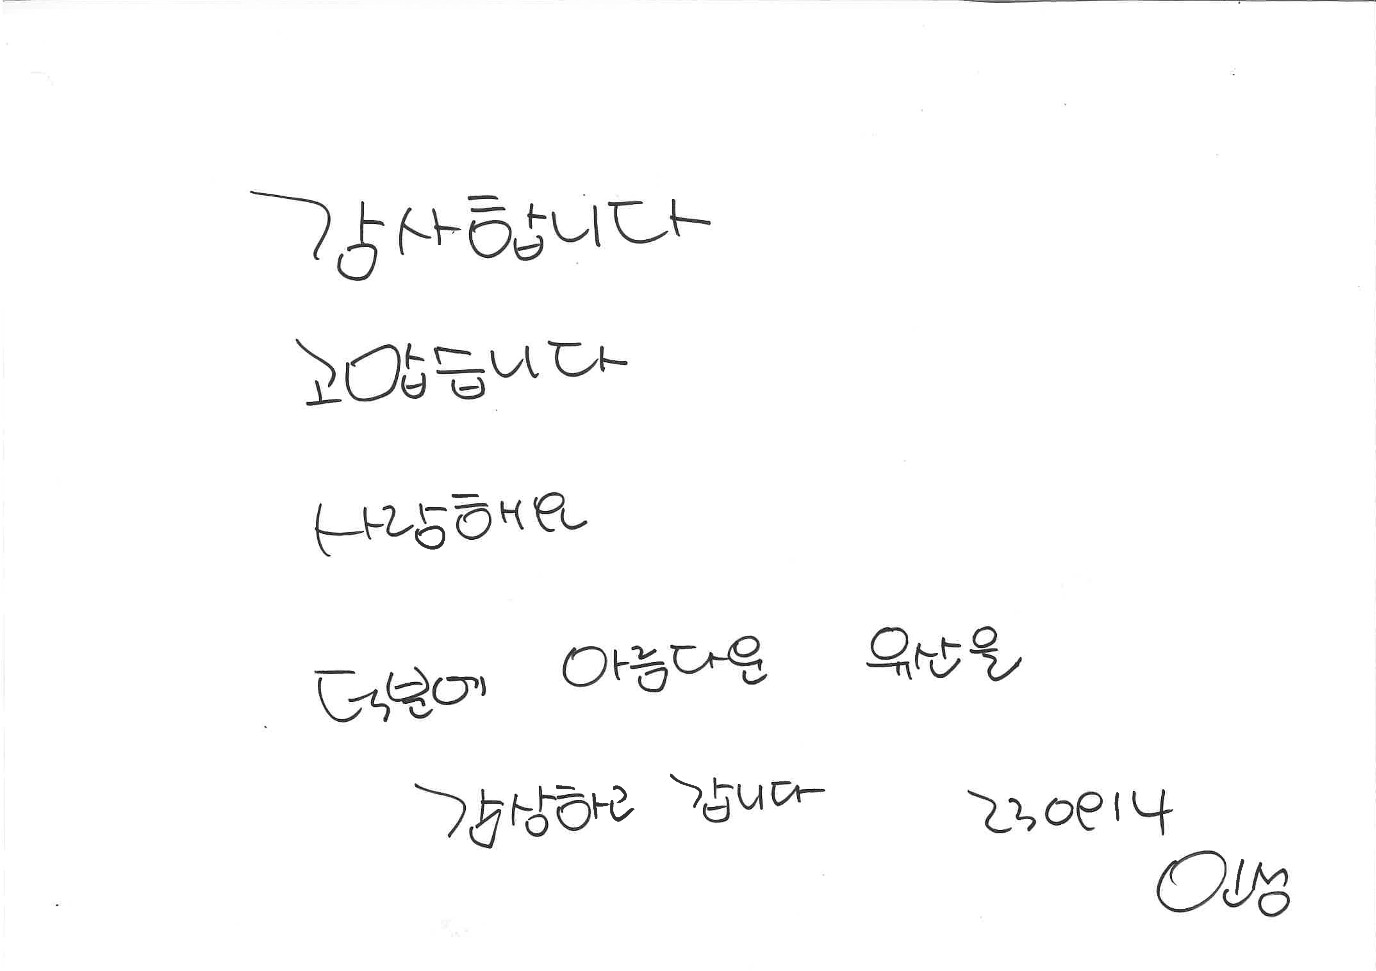 감사합니다
고맙습니다
사랑해요
덕분에 아름다운 유산을
감상하고 갑니다 230914
인성